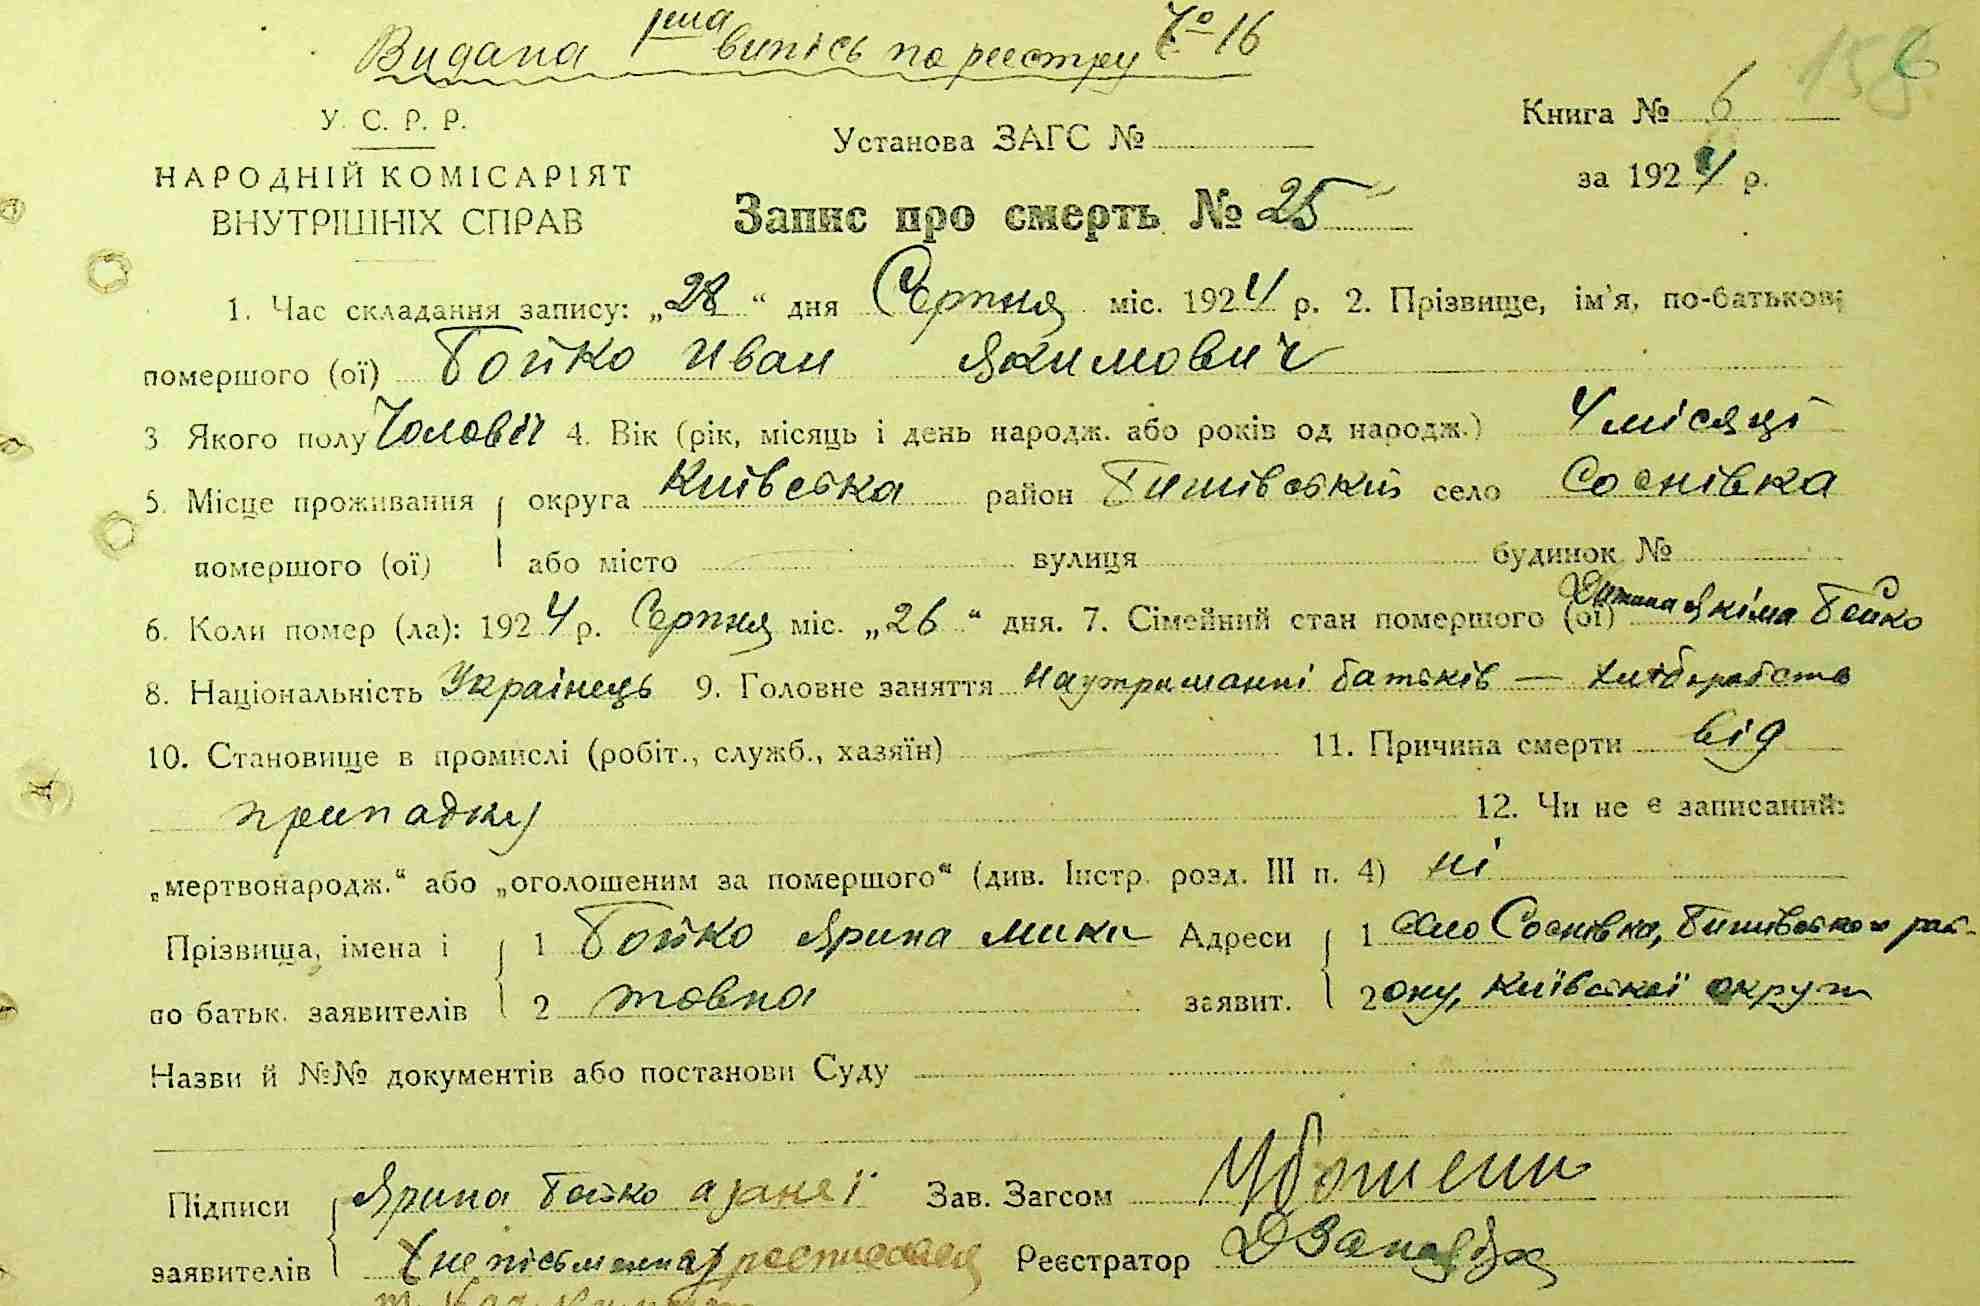 Видана 1ша випісь по реєстру № 16
158
У. С. Р. Р.
НАРОДНІЙ КОМІСАРІЯТ
ВНУТРІШНІХ СПРАВ
Установа ЗАГС №
Запис про смерть № 25
Книга № 6
за 1924 р.
1. Час складання запису: „28“ дня Серпня міс. 1924 р. 2. Прізвище, ім'я, по-батькові
помершого (ої) Бойко Иван Якимович
3 Якого полу Чоловіч 4. Вік (рік, місяць і день народж. або років од народж.) 4 місяці
5. Місце проживання округа Київська район Бишівський село Соснівка
помершого (ої) або місто вулиця будинок №
6. Коли помер (ла): 1924 р. Серпня міс. „26“ дня. 7. Сімейний стан помершого (ої) Дитина Якіма Бойко
8. Національність Українець 9. Головне заняття На утриманні батьків — хліборобство
10. Становище в промислі (робіт., служб., хазяїн) 11. Причина смерти від
припадку
12. Чи не є записаний:
„мертвонародж.“ або „оголошеним за помершого“ (див. Інстр. розд. III п. 4) ні
Прізвища, імена і 1 Бойко Ярина Мики Адреси 1 село Соснівка, Бишівського рай-
по батьк. заявителів 2 товна заявит. 2 ону, Київської округи
Назви й №№ документів або постанови Суду
Підписи Ярина Бойко а за неї Зав. Загсом
заявителів (не письменна) росписався Реєстратор